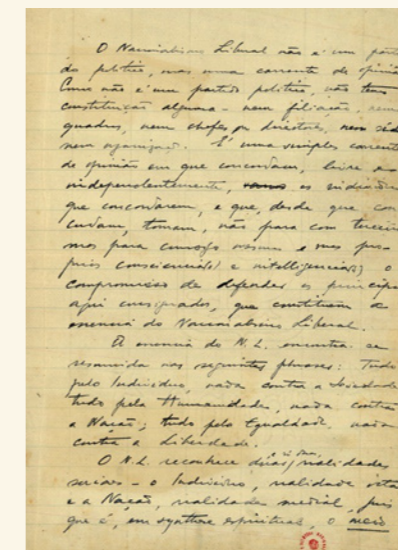 O Nacionalismo Liberal não é um parti
do politico, mas uma corrente de opinião.
Como não é um partido politico, não tem
constituição alguma - nem filiação, nem
quadros, nem chefes ou directores, nem séde
nem organização. É uma simples corrente
de opinião em que concordam, livre e
independentemente, os individuos
que concordarem, e que, desde que con
cordam, tomam, não para com tercei
ros para comsigo mesmos e suas pro
prias consciencia(s) e intelligencia(s) o
compromisso de defender os principios
aqui consignados, que constituem a
essencia do Nacionalismo Liberal.
A essencia do N. L. encontra-se
resumida nas seguintes phrases: Tudo
pelo Individuo, nada contra a Sociedade;
tudo pela Humanidade, nada contra
a Nação; tudo pela Egualdade, nada
contra a Liberdade.
O N.L. reconhece duas, e só duas, realidades
sociaes - o Individuo, realidade
e a Nação, realidade pois
que é, em synthese espiritual, o meio